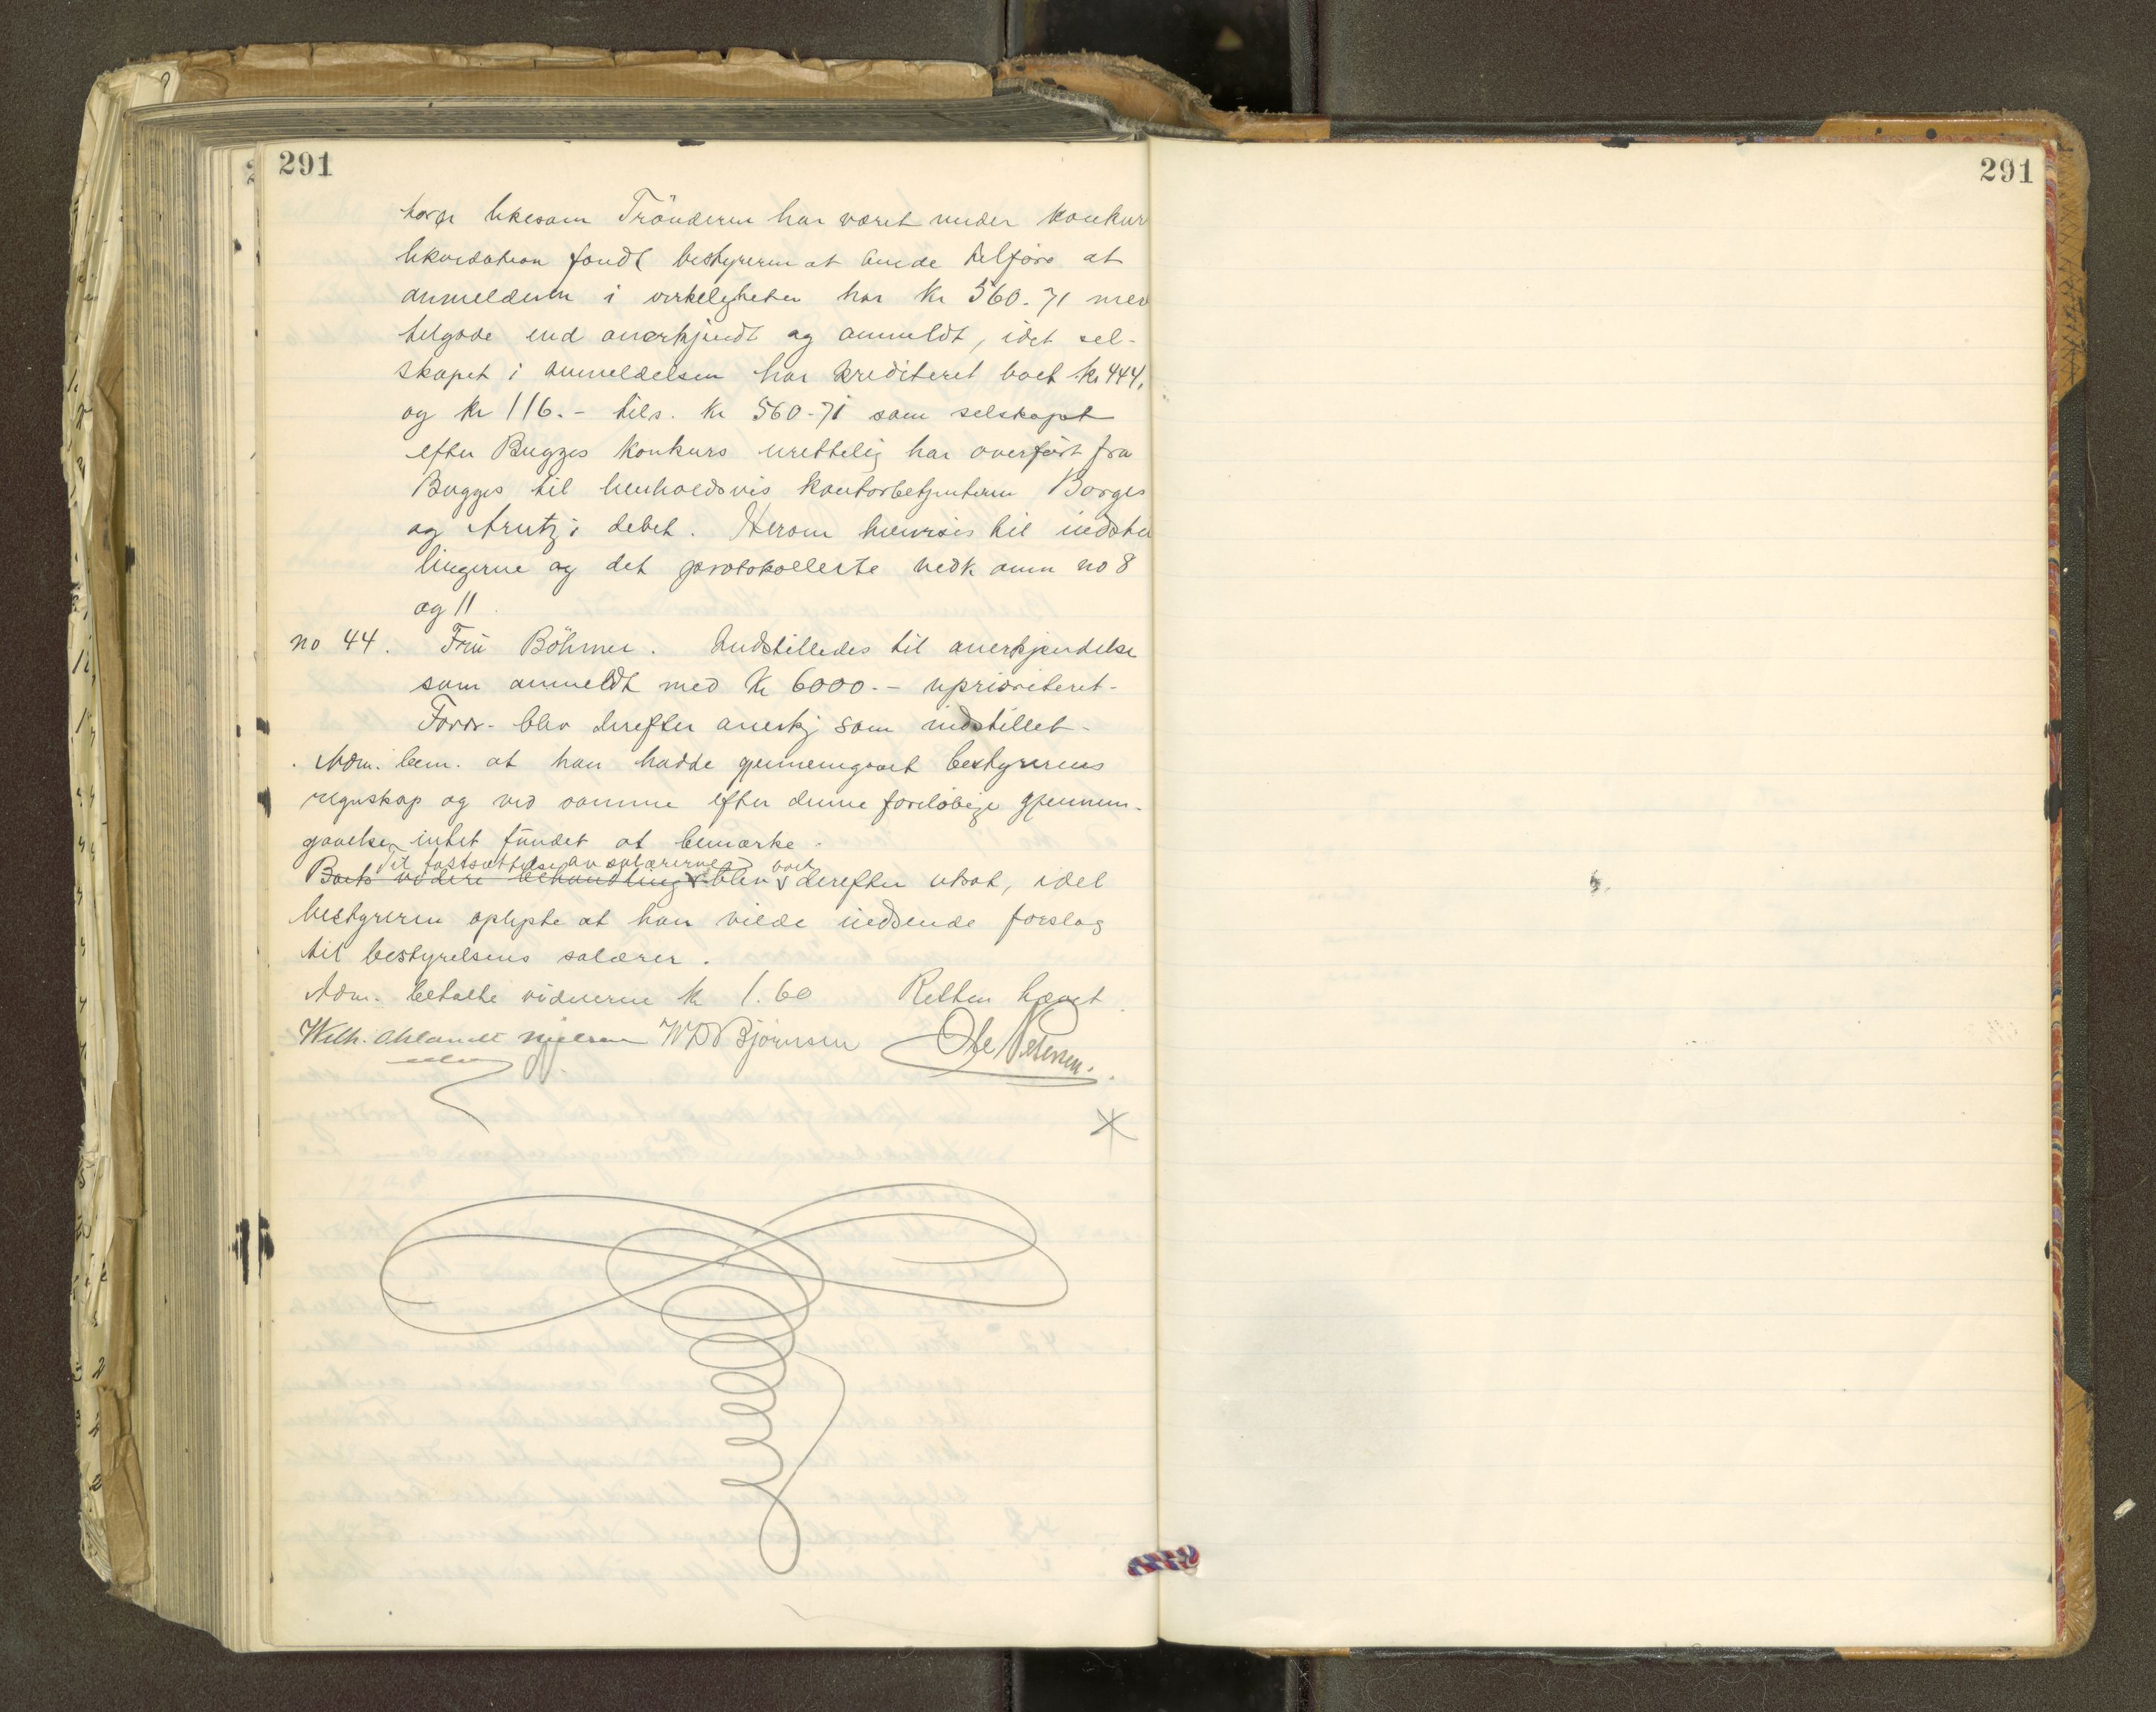 291
291
torg likesom Trönderen har været under konkur
likvidation fandt bestyreren at burde tilføre at
anmelderen i virkeligheten har kr 560.71 mer
tilgode end anerkjendt og anmeldt, idet sel-
skapet i anmeldelsen har krediteret boet kr 444,
og kr 116.- tils. kr 560-71 som selskapet
efter Bugges konkurs urettelig har overført fra
Bugges til henholdsvis kontorbetjenterne Borges
og Arntz's debet. Herom henvises til indstil
lingerne og det protokollerte vedk anm no 8
og 11.
no 44. Fru Böhmer. Indstilledes til anerkjendelse
som anmeldt med kr 6000.- uprioriteret.
Fordr. blev derefter anerkj som indstillet.
Adm. bem. at han hadde gjennemgaaet bestyrerens
regnskap og ved samme efter denne foreløbige gjennem-
gaaelse intet fundet at bemærke.
Til fastsættelse av salærerne boet
Boets videre behandling blev derefter utsat, idet
bestyreren oplyste at han vilde indsende forslag
til bestyrelsens salærer.
Adm. betalte vidnerne kr 1.60 Retten hævet.
Wilh. Ahlandt Nielsen W D Bjørnsen Ole Petersen.